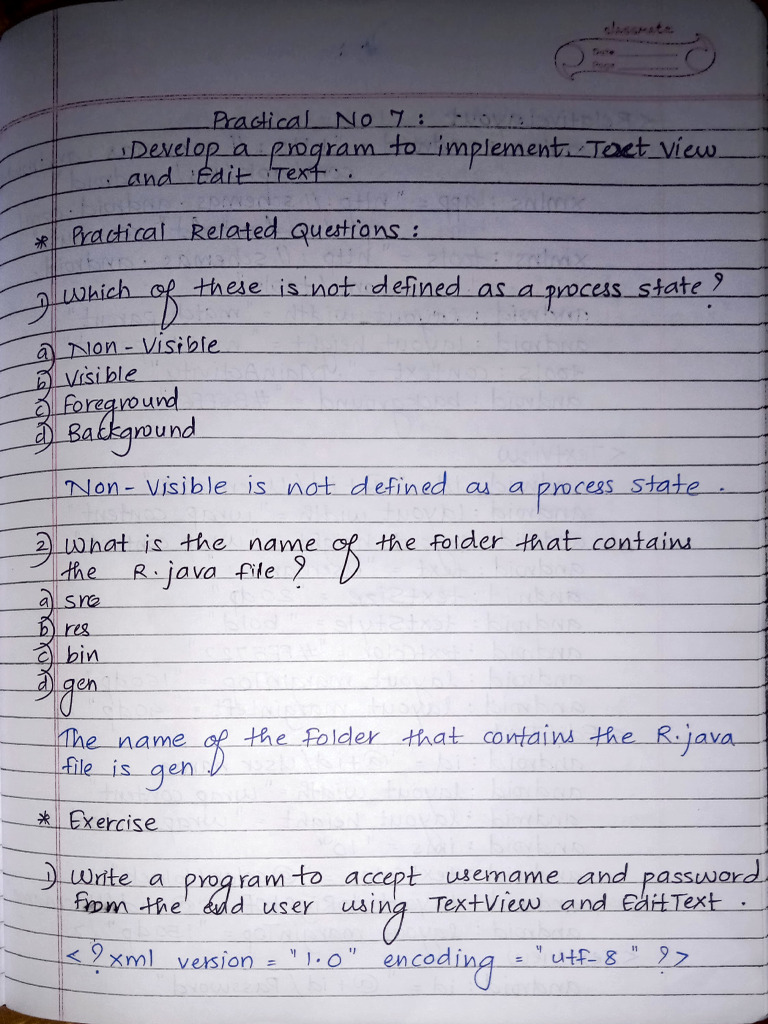 classmate
Date
Page
Practical No 7 :
Develop a program to implement Text View
and Edit Text .
* Practical Related Questions :
1) Which of these is not defined as a process state ?
a) Non - Visible
b) Visible
c) Foreground
d) Background
Non - Visible is not defined as a process state .
2) What is the name of the folder that contains
the R. java file ?
a) src
b) res
c) bin
d) gen
The name of the folder that contains the R. java
file is gen .
* Exercise
1) Write a program to accept username and password
from the end user using TextView and EditText .
< ? xml version = "1.0" encoding = "utf-8" ?>